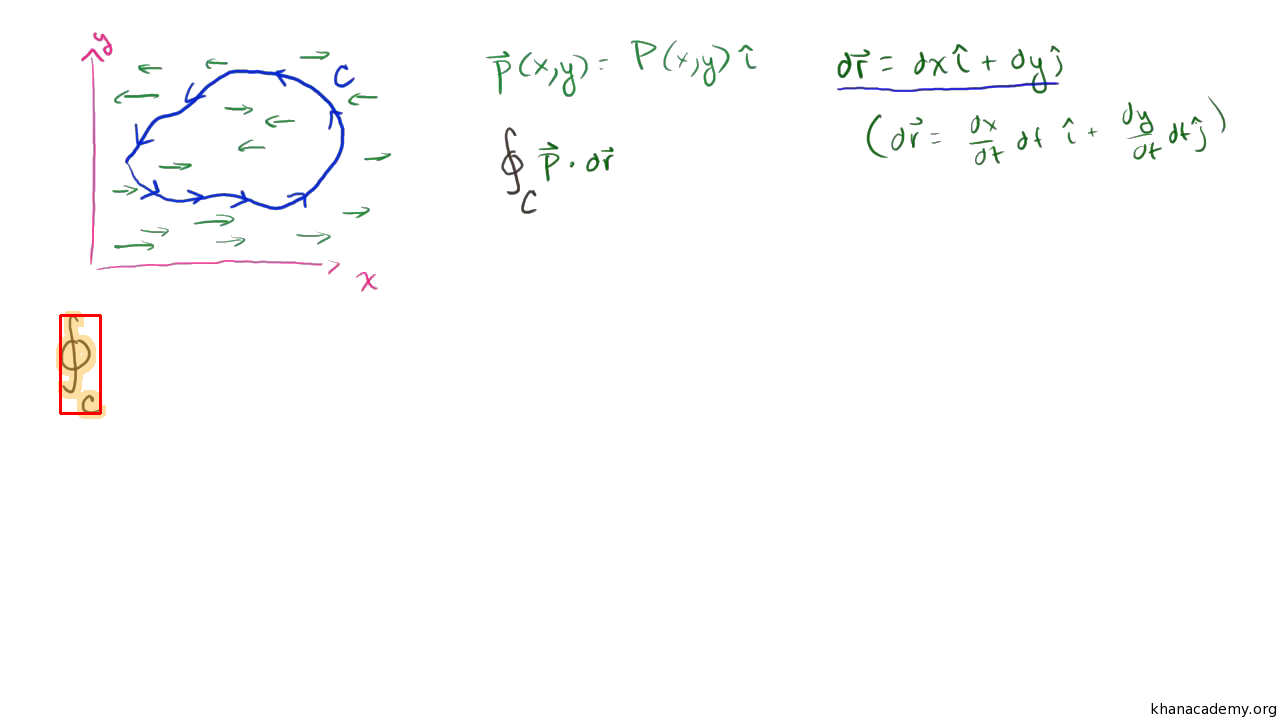 y
C
x
p⃗(x,y) = P(x,y) î
dr⃗ = dx î + dy ĵ
(dr⃗ = dx/dt dt î + dy/dt dt ĵ)
∮_C p⃗ · dr⃗
∮_C
khanacademy.org